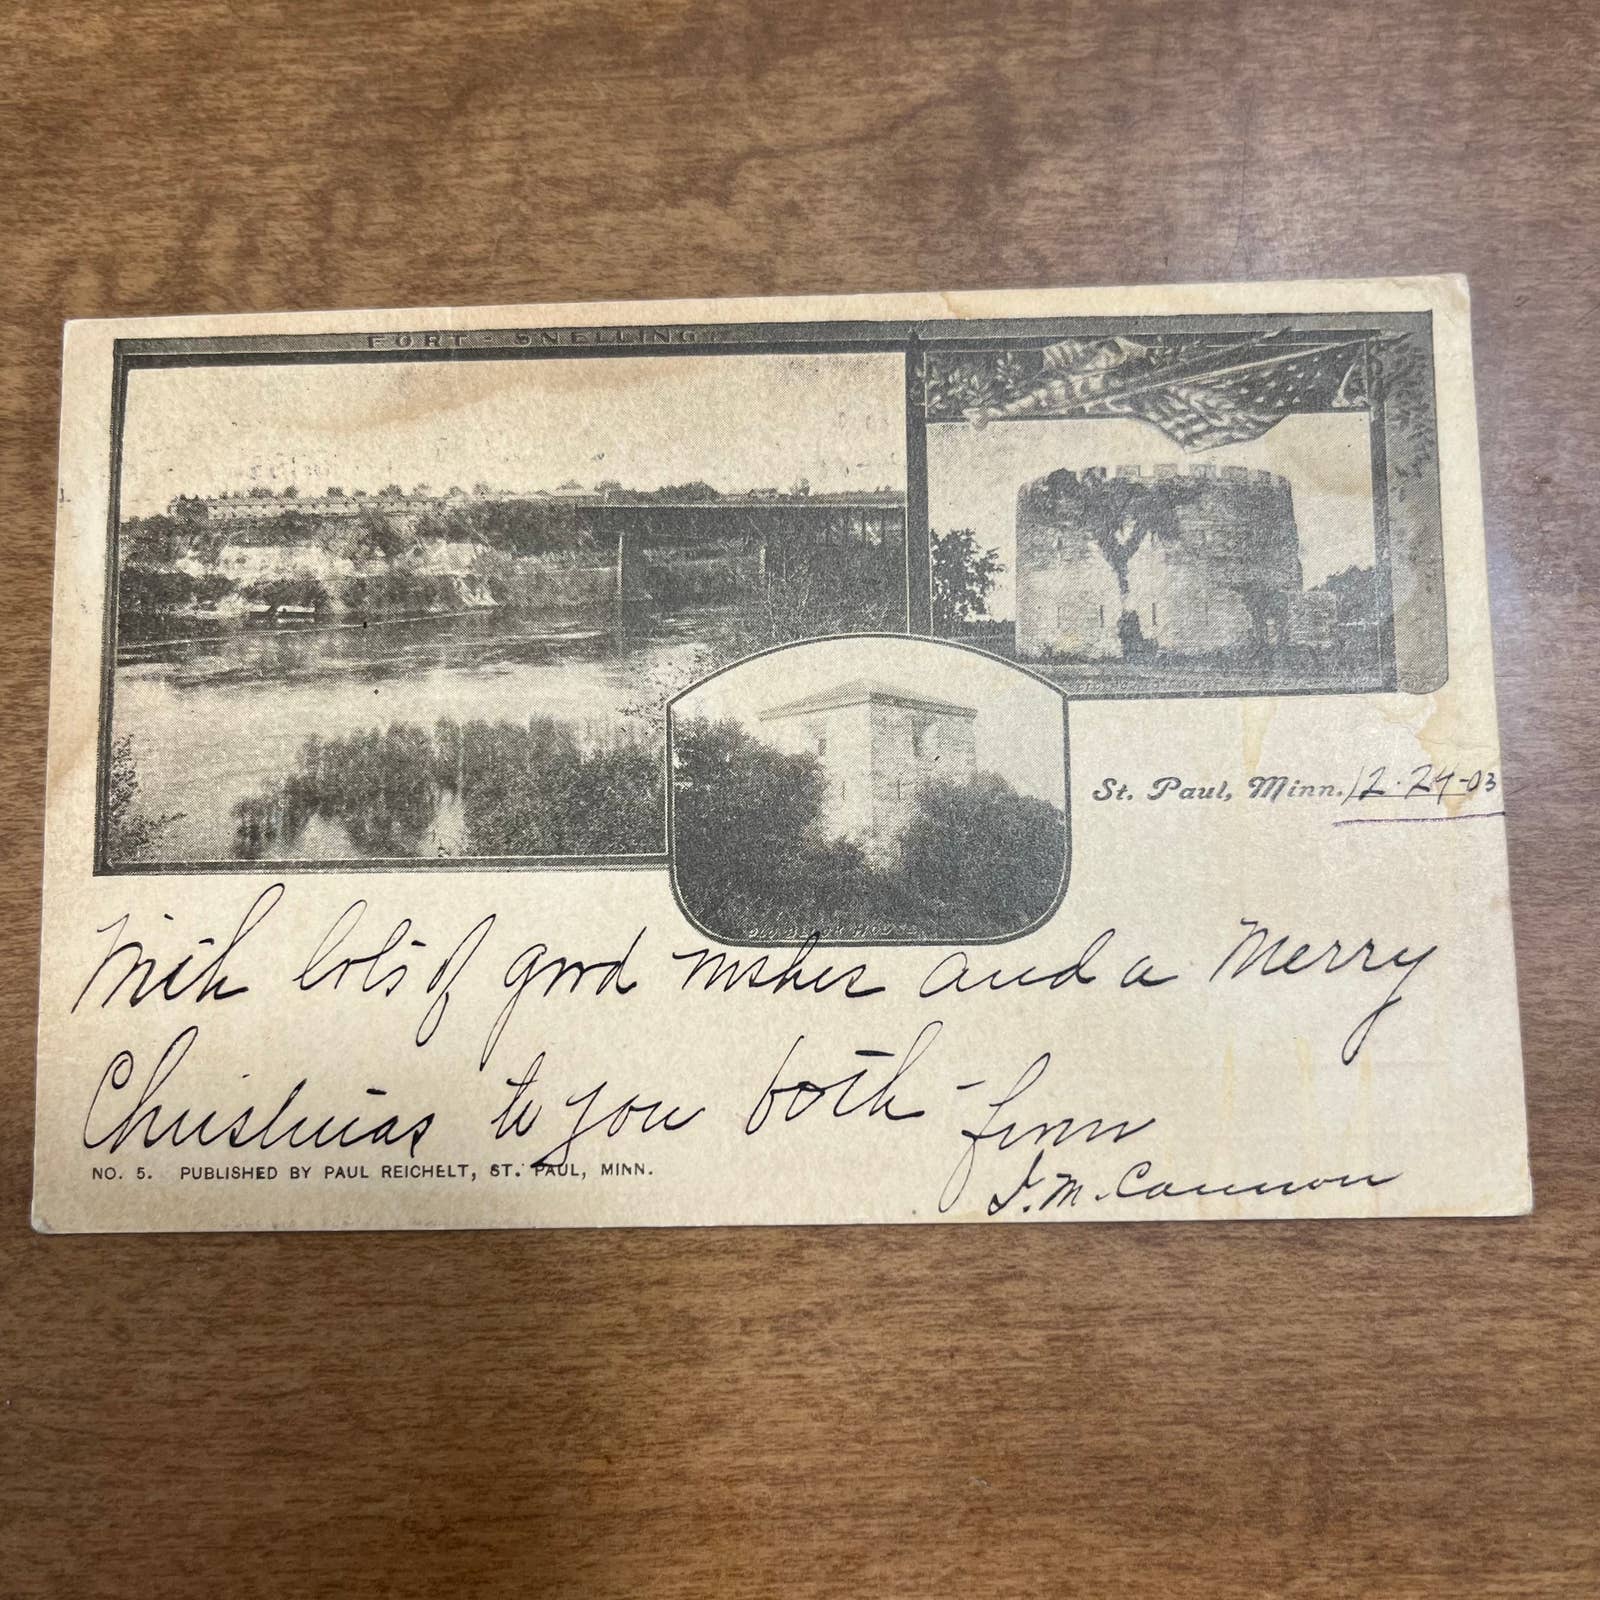 FORT - SNELLING
OLD BLOCK HOUSE
St. Paul, Minn. 12-24-03
With lots of good wishes and a Merry
Christmas to you both - from
J. M. Cannon
NO. 5. PUBLISHED BY PAUL REICHELT, ST. PAUL, MINN.